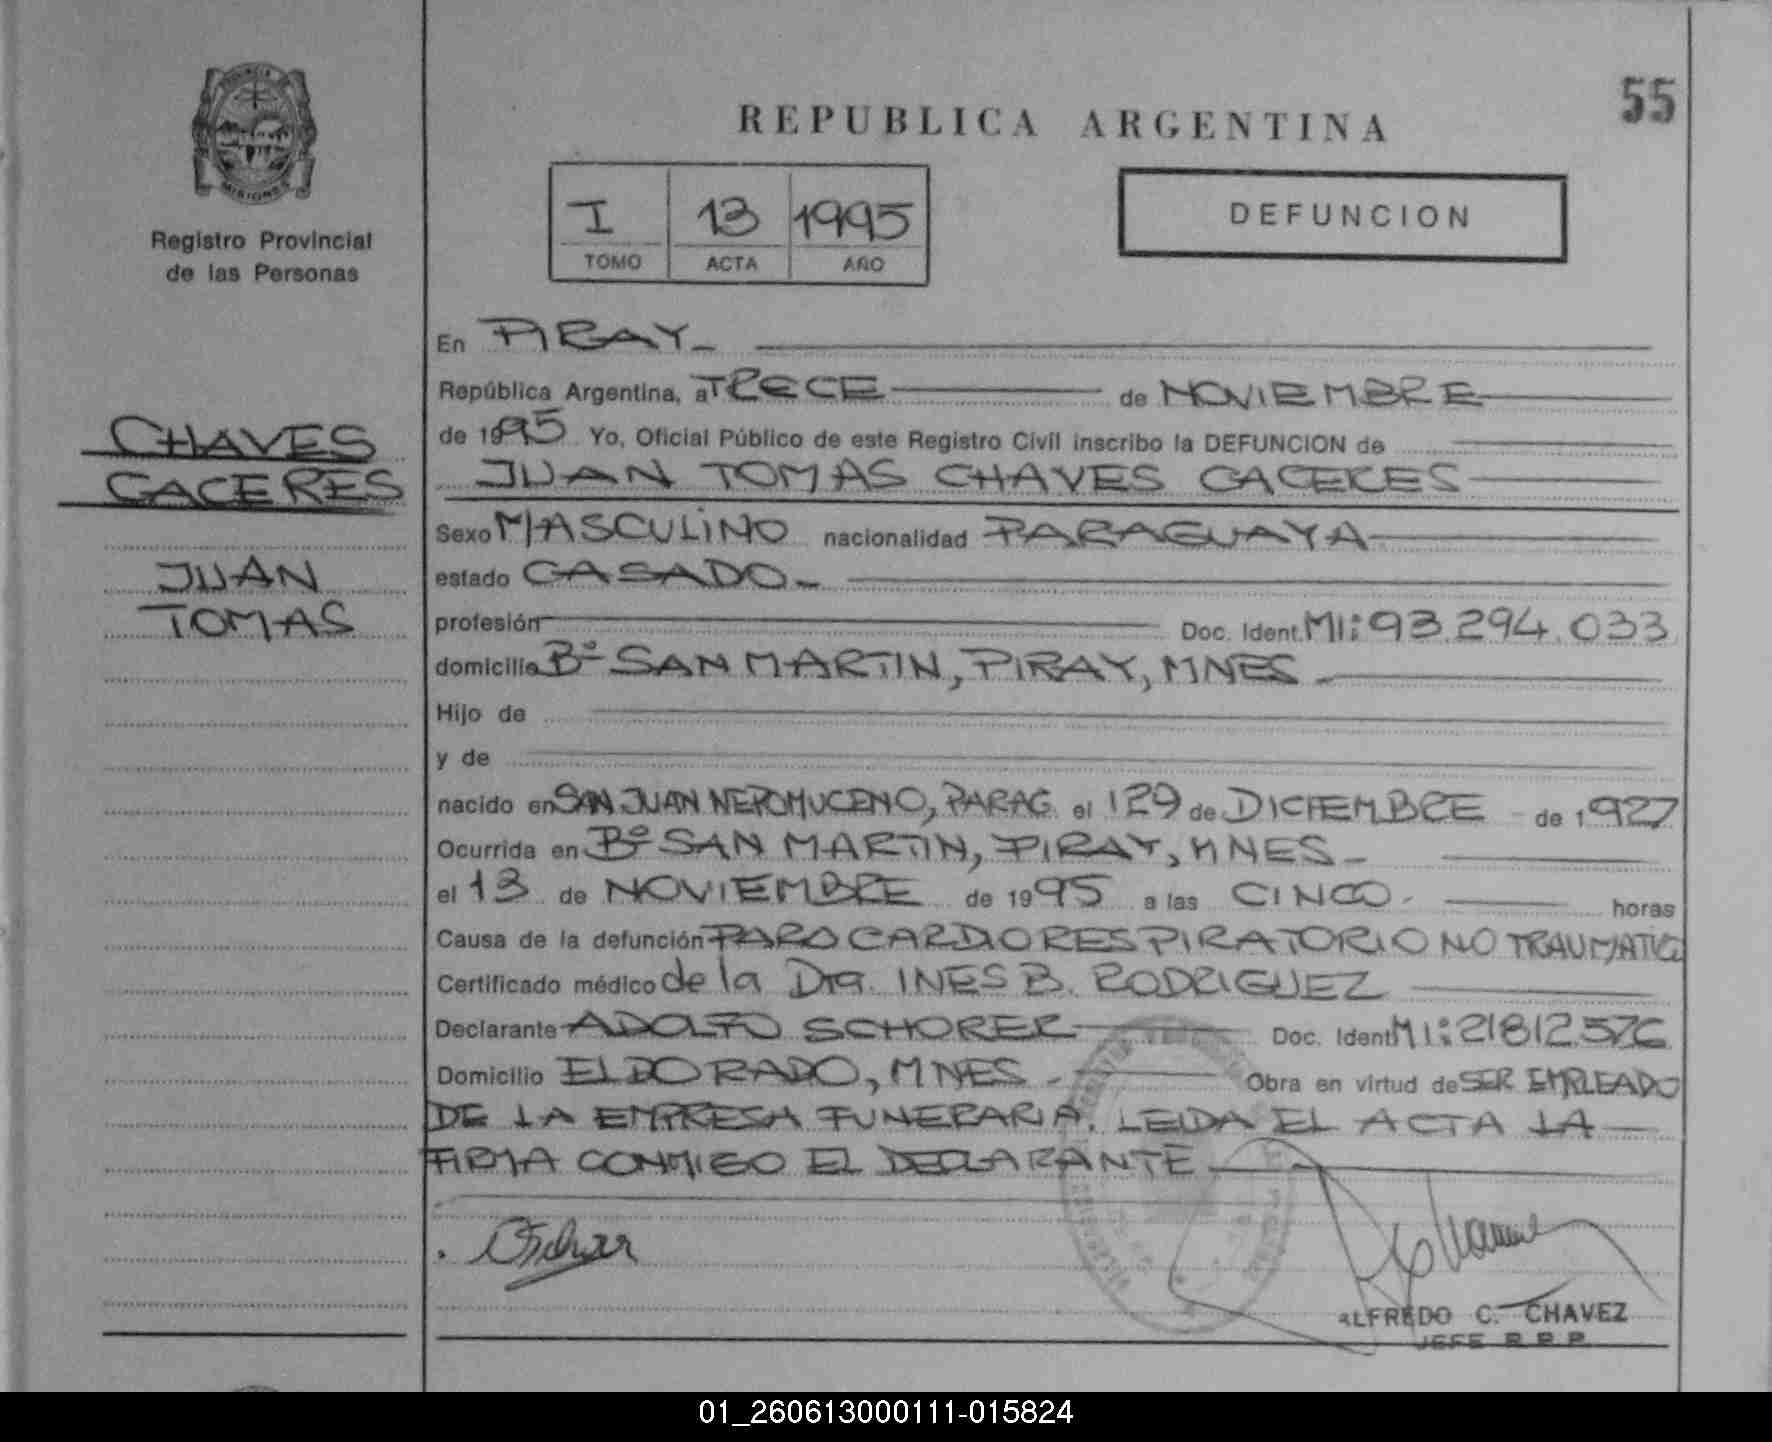 55
REPUBLICA ARGENTINA
PROVINCIA
MISIONES
Registro Provincial
de las Personas
I 13 1995
TOMO ACTA AÑO
DEFUNCION
CHAVES
CACERES
JUAN
TOMAS
En PIRAY
República Argentina, a TRECE de NOVIEMBRE
de 1995 Yo, Oficial Público de este Registro Civil inscribo la DEFUNCION de
JUAN TOMAS CHAVES CACERES
Sexo MASCULINO nacionalidad PARAGUAYA
estado CASADO
profesión Doc. Ident. MI: 93.294.033
domicilio Bº SAN MARTIN, PIRAY, MNES
Hijo de
y de
nacido en SAN JUAN NEPOMUCENO, PARAG. el 29 de DICIEMBRE de 1927
Ocurrida en Bº SAN MARTIN, PIRAY, MNES
el 13 de NOVIEMBRE de 1995 a las CINCO horas
Causa de la defunción PARO CARDIO RESPIRATORIO NO TRAUMATICO
Certificado médico de la Dra. INES B. RODRIGUEZ
Declarante ADOLFO SCHORER Doc. Ident MI: 21812576
Domicilio ELDORADO, MNES Obra en virtud de SER EMPLEADO
DE LA EMPRESA FUNERARIA. LEIDA EL ACTA LA
FIRMA CONMIGO EL DECLARANTE
ALFREDO C. CHAVEZ
JEFE R.P.P.
01_260613000111-015824